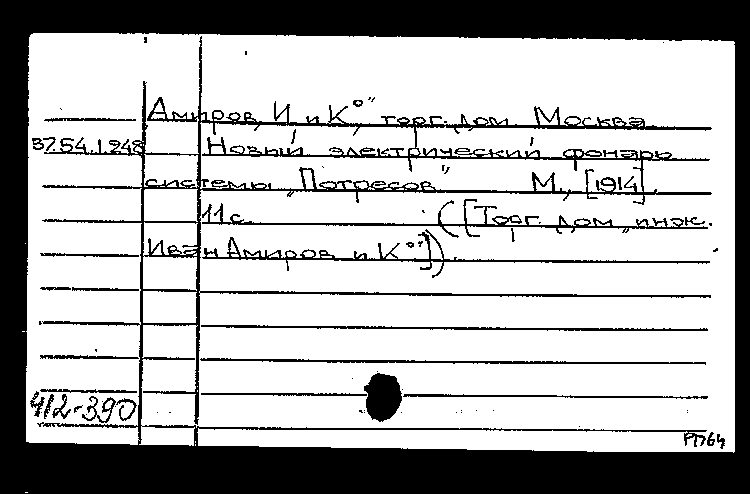 Амиров, И. и К°", торг. дом. Москва.
37.54.1.248 Новый электрический фонарь
системы „Потресов" М., [1914].
11 с. ([Торг. дом „инж.
Иван Амиров и К°"]).
412-390